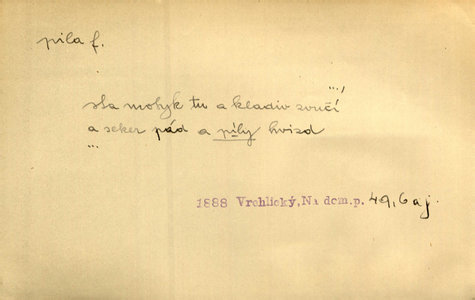 pila f.
sta motyk tu a kladiv zvučí ...,
a seker pád a píly hvizd
...
1888 Vrchlický, Na dom. p. 49, 6 aj.